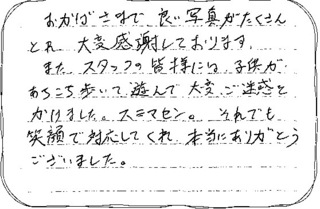 おかげさまで 良い写真がたくさん
とれ、大変感謝しております。
また スタッフの皆様には、子供が
あちこち歩いて遊んで 大変ご迷惑を
かけました。スミマセン。それでも
笑顔で対応してくれ、本当にありがとう
ございました。